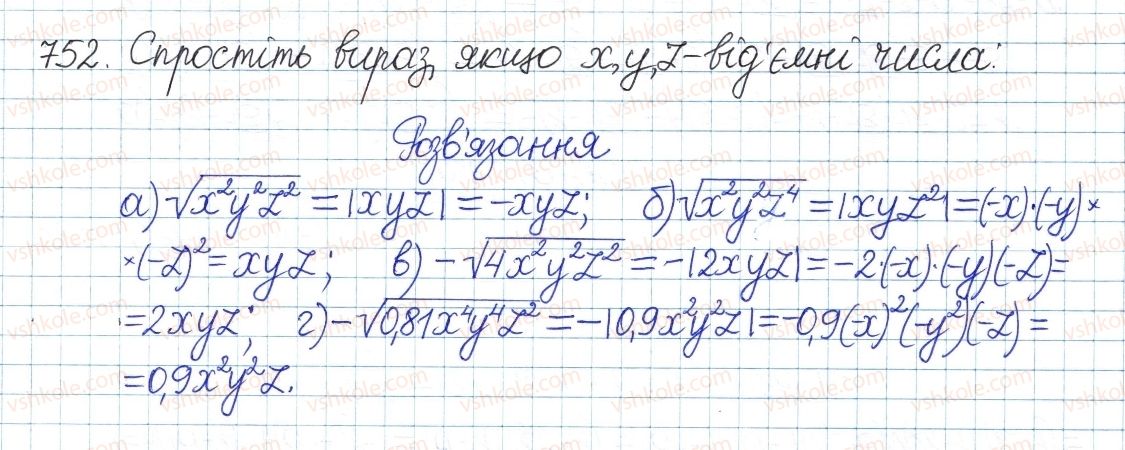 752. Спростіть вираз, якщо x,y,z-від'ємні числа:
Розв'язання
а) √x²y²z² = |xyz| = -xyz; б) √x²y²z⁴ = |xyz²| = (-x)·(-y)×
×(-z)² = xyz; в) -√4x²y²z² = -|2xyz| = -2·(-x)·(-y)(-z)=
=2xyz; г) -√0,81x⁴y⁴z² = -|0,9x²y²z| = -0,9(-x)²(-y²)(-z) =
=0,9x²y²z.